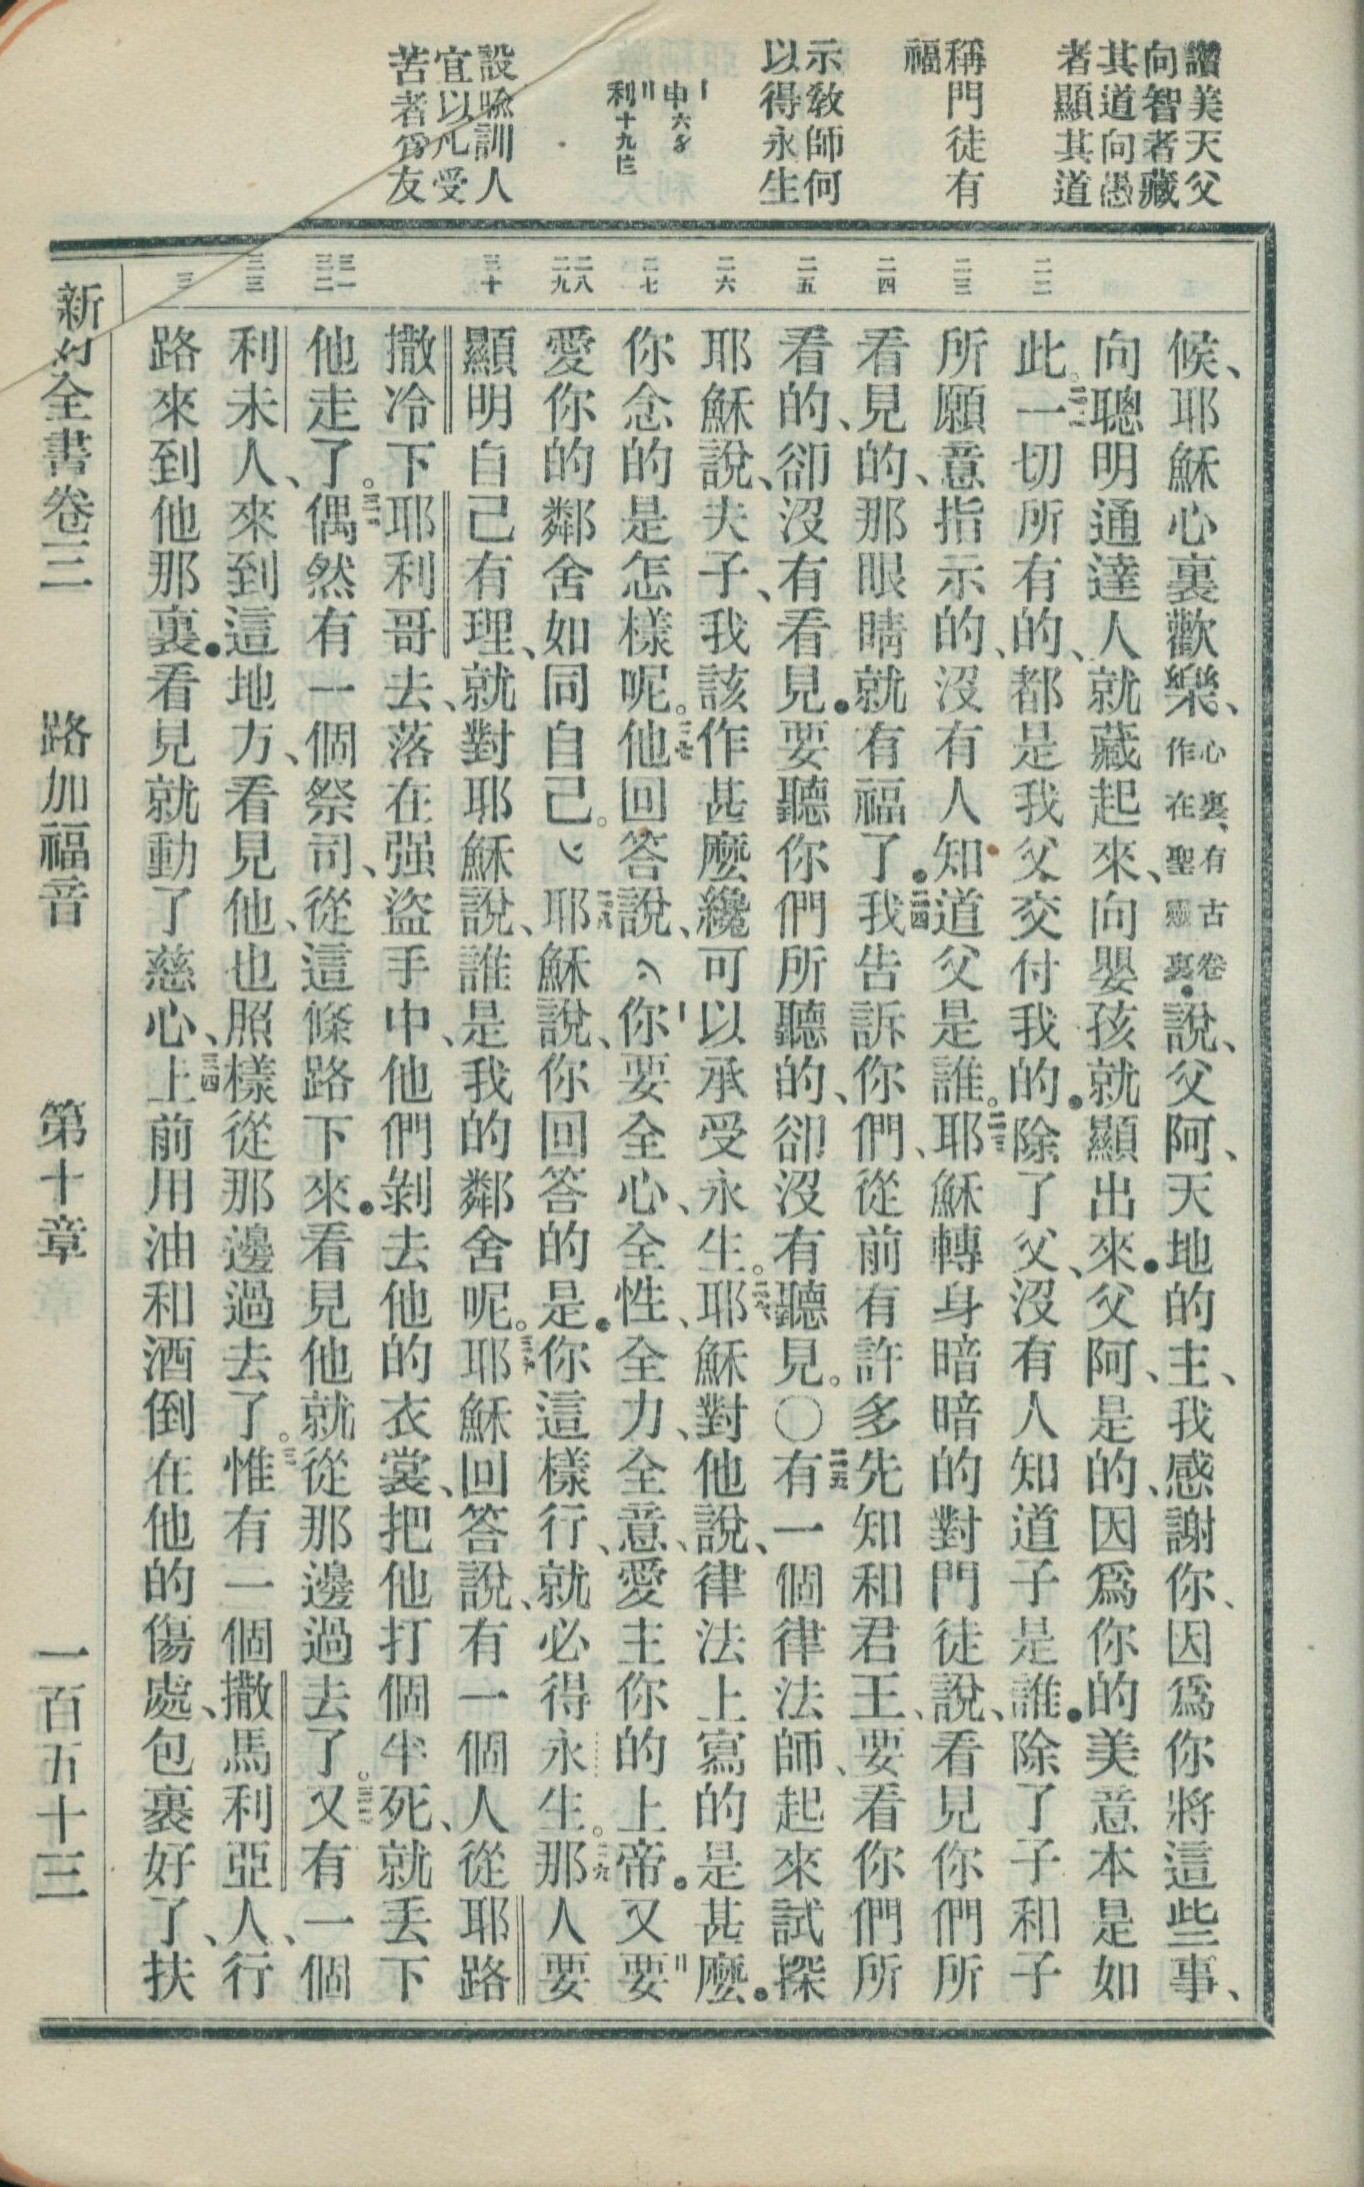 讚美天父
向智者藏
其道向愚
者顯其道
稱門徒有
福
示敎師何
以得永生
申六
利十九
設喩訓人
宜以凡受
苦者爲友
二二
二三
二四
二五
二六
二七
二八
二九
三十
三一
三二
三三
候、耶穌心裏歡樂、心裏、有古卷作在聖靈裏。說、父阿、天地的主、我感謝你、因爲你將這些事、
向聰明通達人就藏起來、向嬰孩就顯出來。父阿、是的、因爲你的美意本是如
此。二二一切所有的、都是我父交付我的。除了父、沒有人知道子是誰。除了子和子
所願意指示的、沒有人知道父是誰。二三耶穌轉身暗暗的對門徒說、看見你們所
看見的、那眼睛就有福了。二四我告訴你們、從前有許多先知和君王、要看你們所
看的、卻沒有看見。要聽你們所聽的、卻沒有聽見。〇二五有一個律法師、起來試探
耶穌說、夫子、我該作甚麼纔可以承受永生。二六耶穌對他說、律法上寫的是甚麼。
你念的是怎樣呢。二七他回答說、你要全心、全性、全力、全意、愛主你的上帝。又要
愛你的鄰舍如同自己。二八耶穌說、你回答的是。你這樣行、就必得永生。二九那人要
顯明自己有理、就對耶穌說、誰是我的鄰舍呢。三十耶穌回答說、有一個人從耶路
撒冷下耶利哥去、落在强盜手中、他們剝去他的衣裳、把他打個半死、就丟下
他走了。三一偶然有一個祭司、從這條路下來。看見他就從那邊過去了。三二又有一個
利未人、來到這地方、看見他、也照樣從那邊過去了。三三惟有一個撒馬利亞人、行
路來到他那裏。看見就動了慈心、三四上前用油和酒倒在他的傷處、包裹好了、扶
新約全書卷三　路加福音　第十章　一百五十三